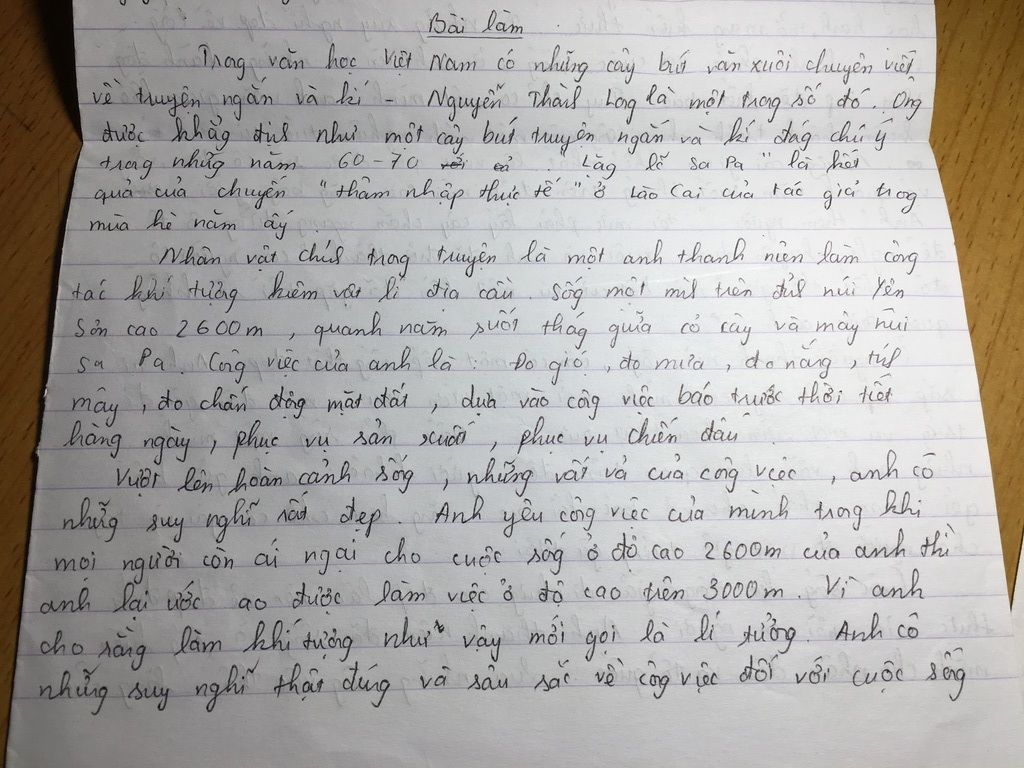 Bài làm
Trong văn học Việt Nam có những cây bút văn xuôi chuyên viết
về truyện ngắn và kí - Nguyễn Thành Long là một trong số đó. Ông
được khẳng định như một cây bút truyện ngắn và kí đáng chú ý
trong những năm 60-70 "Lặng lẽ Sa Pa" là kết
quả của chuyến "thâm nhập thực tế" ở Lào Cai của tác giả trong
mùa hè năm ấy.
Nhân vật chính trong truyện là một anh thanh niên làm công
tác khí tượng kiêm vật lí địa cầu. Sống một mình trên đỉnh núi Yên
Sơn cao 2600m, quanh năm suốt tháng giữa cỏ cây và mây núi
Sa Pa. Công việc của anh là: Đo gió, đo mưa, đo nắng, tính
mây, đo chấn động mặt đất, dựa vào công việc báo trước thời tiết
hàng ngày, phục vụ sản xuất, phục vụ chiến đấu.
Vượt lên hoàn cảnh sống, những vất vả của công việc, anh có
những suy nghĩ rất đẹp. Anh yêu công việc của mình trong khi
mọi người còn ái ngại cho cuộc sống ở độ cao 2600m của anh thì
anh lại ước ao được làm việc ở độ cao trên 3000m. Vì anh
cho rằng làm khí tượng như vậy mới gọi là lí tưởng. Anh có
những suy nghĩ thật đúng và sâu sắc về công việc đối với cuộc sống